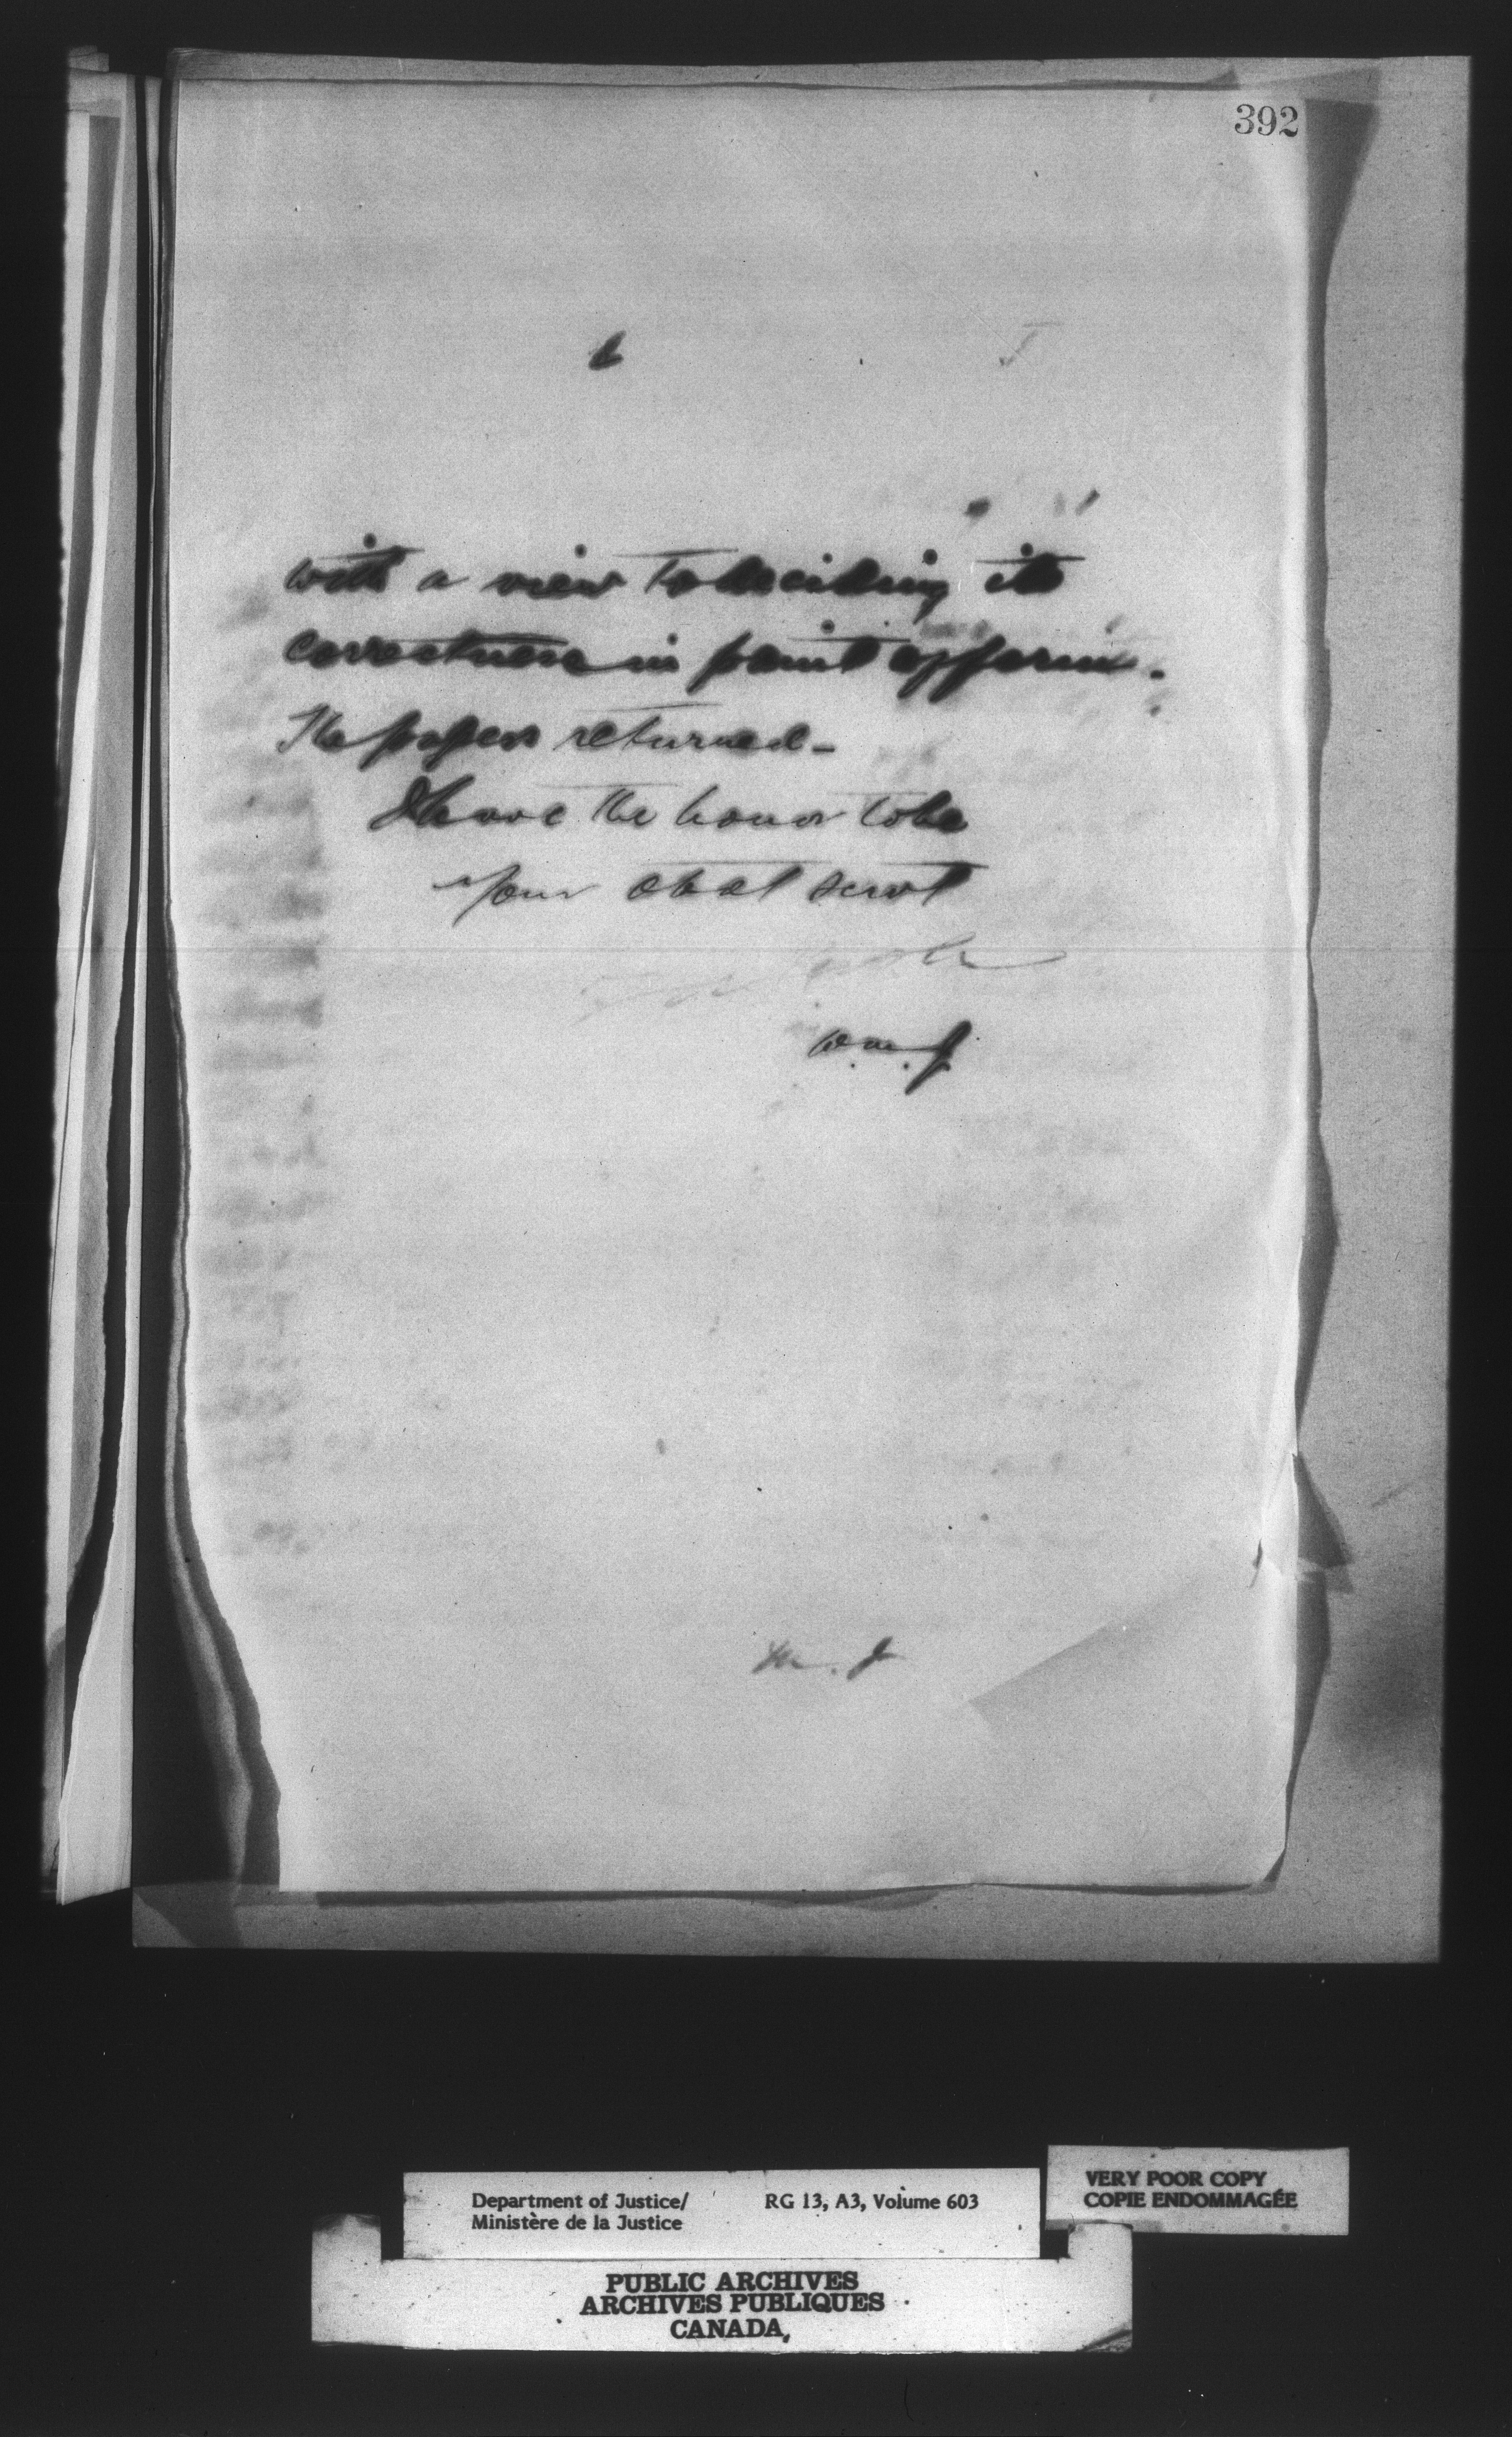 392
with a view to deciding its
correctness in point of form.
The papers returned -
I have the honor to be
your obdt servt
M. J
Department of Justice/ RG 13, A3, Volume 603
Ministère de la Justice
VERY POOR COPY
COPIE ENDOMMAGÉE
PUBLIC ARCHIVES
ARCHIVES PUBLIQUES
CANADA